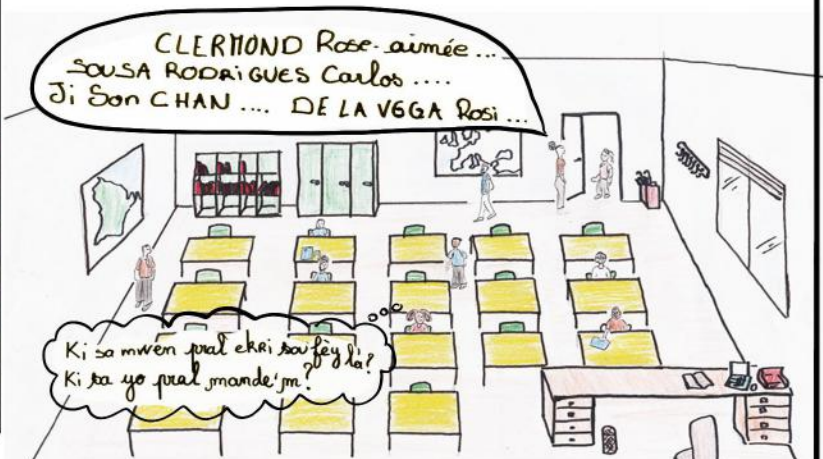 CLERMOND Rose-aimée...
SOUSA RODRIGUES Carlos ....
Ji Son CHAN .... DE LA VEGA Rosi...
Ki sa mwen pral ekri sou fèy là?
Ki sa yo pral mande'm?